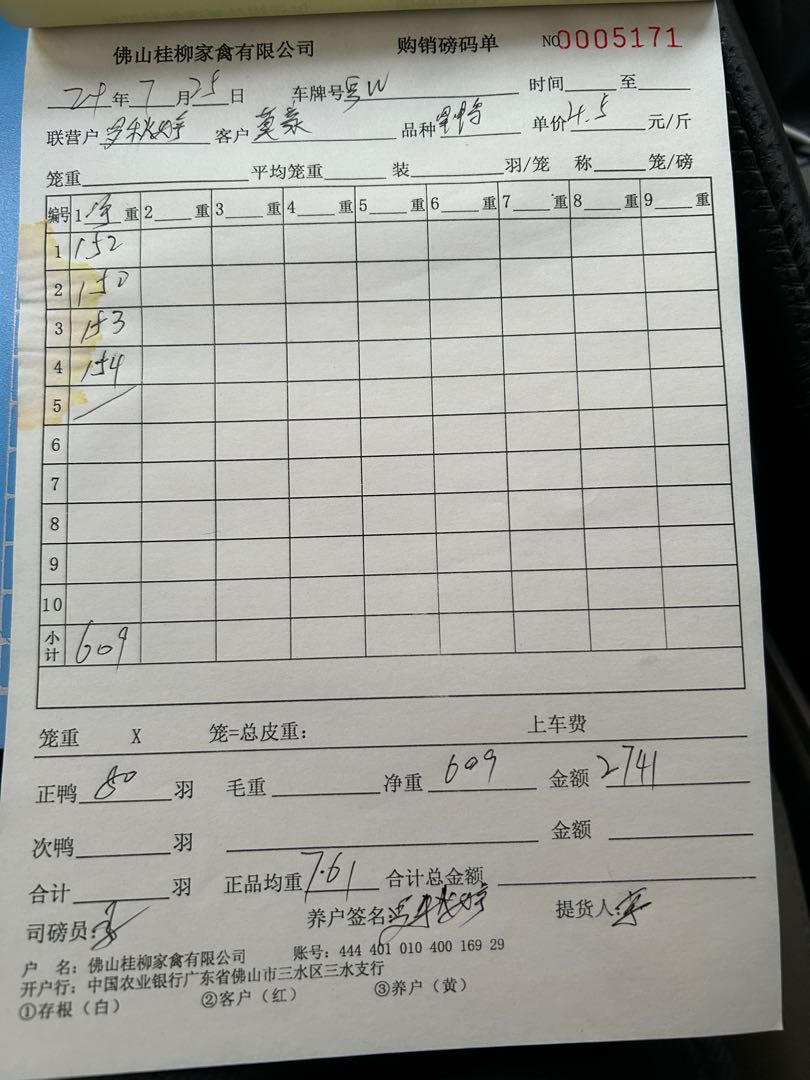 佛山桂柳家禽有限公司 购销磅码单 NO0005171
24年7月25日 车牌号粤W 时间 至
联营户 客户莫豪 品种 单价4.5元/斤
笼重 平均笼重 装 羽/笼 称 笼/磅
编号 1净重 2 重 3 重 4 重 5 重 6 重 7 重 8 重 9 重
1 152
2 150
3 153
4 154
5
6
7
8
9
10
小计 609
笼重 X 笼=总皮重： 上车费
正鸭80羽 毛重 净重609 金额2741
次鸭 羽 金额
合计 羽 正品均重7.61 合计总金额
司磅员: 养户签名: 提货人:
户 名：佛山桂柳家禽有限公司 账号：444 401 010 400 169 29
开户行：中国农业银行广东省佛山市三水区三水支行
①存根（白） ②客户（红） ③养户（黄）